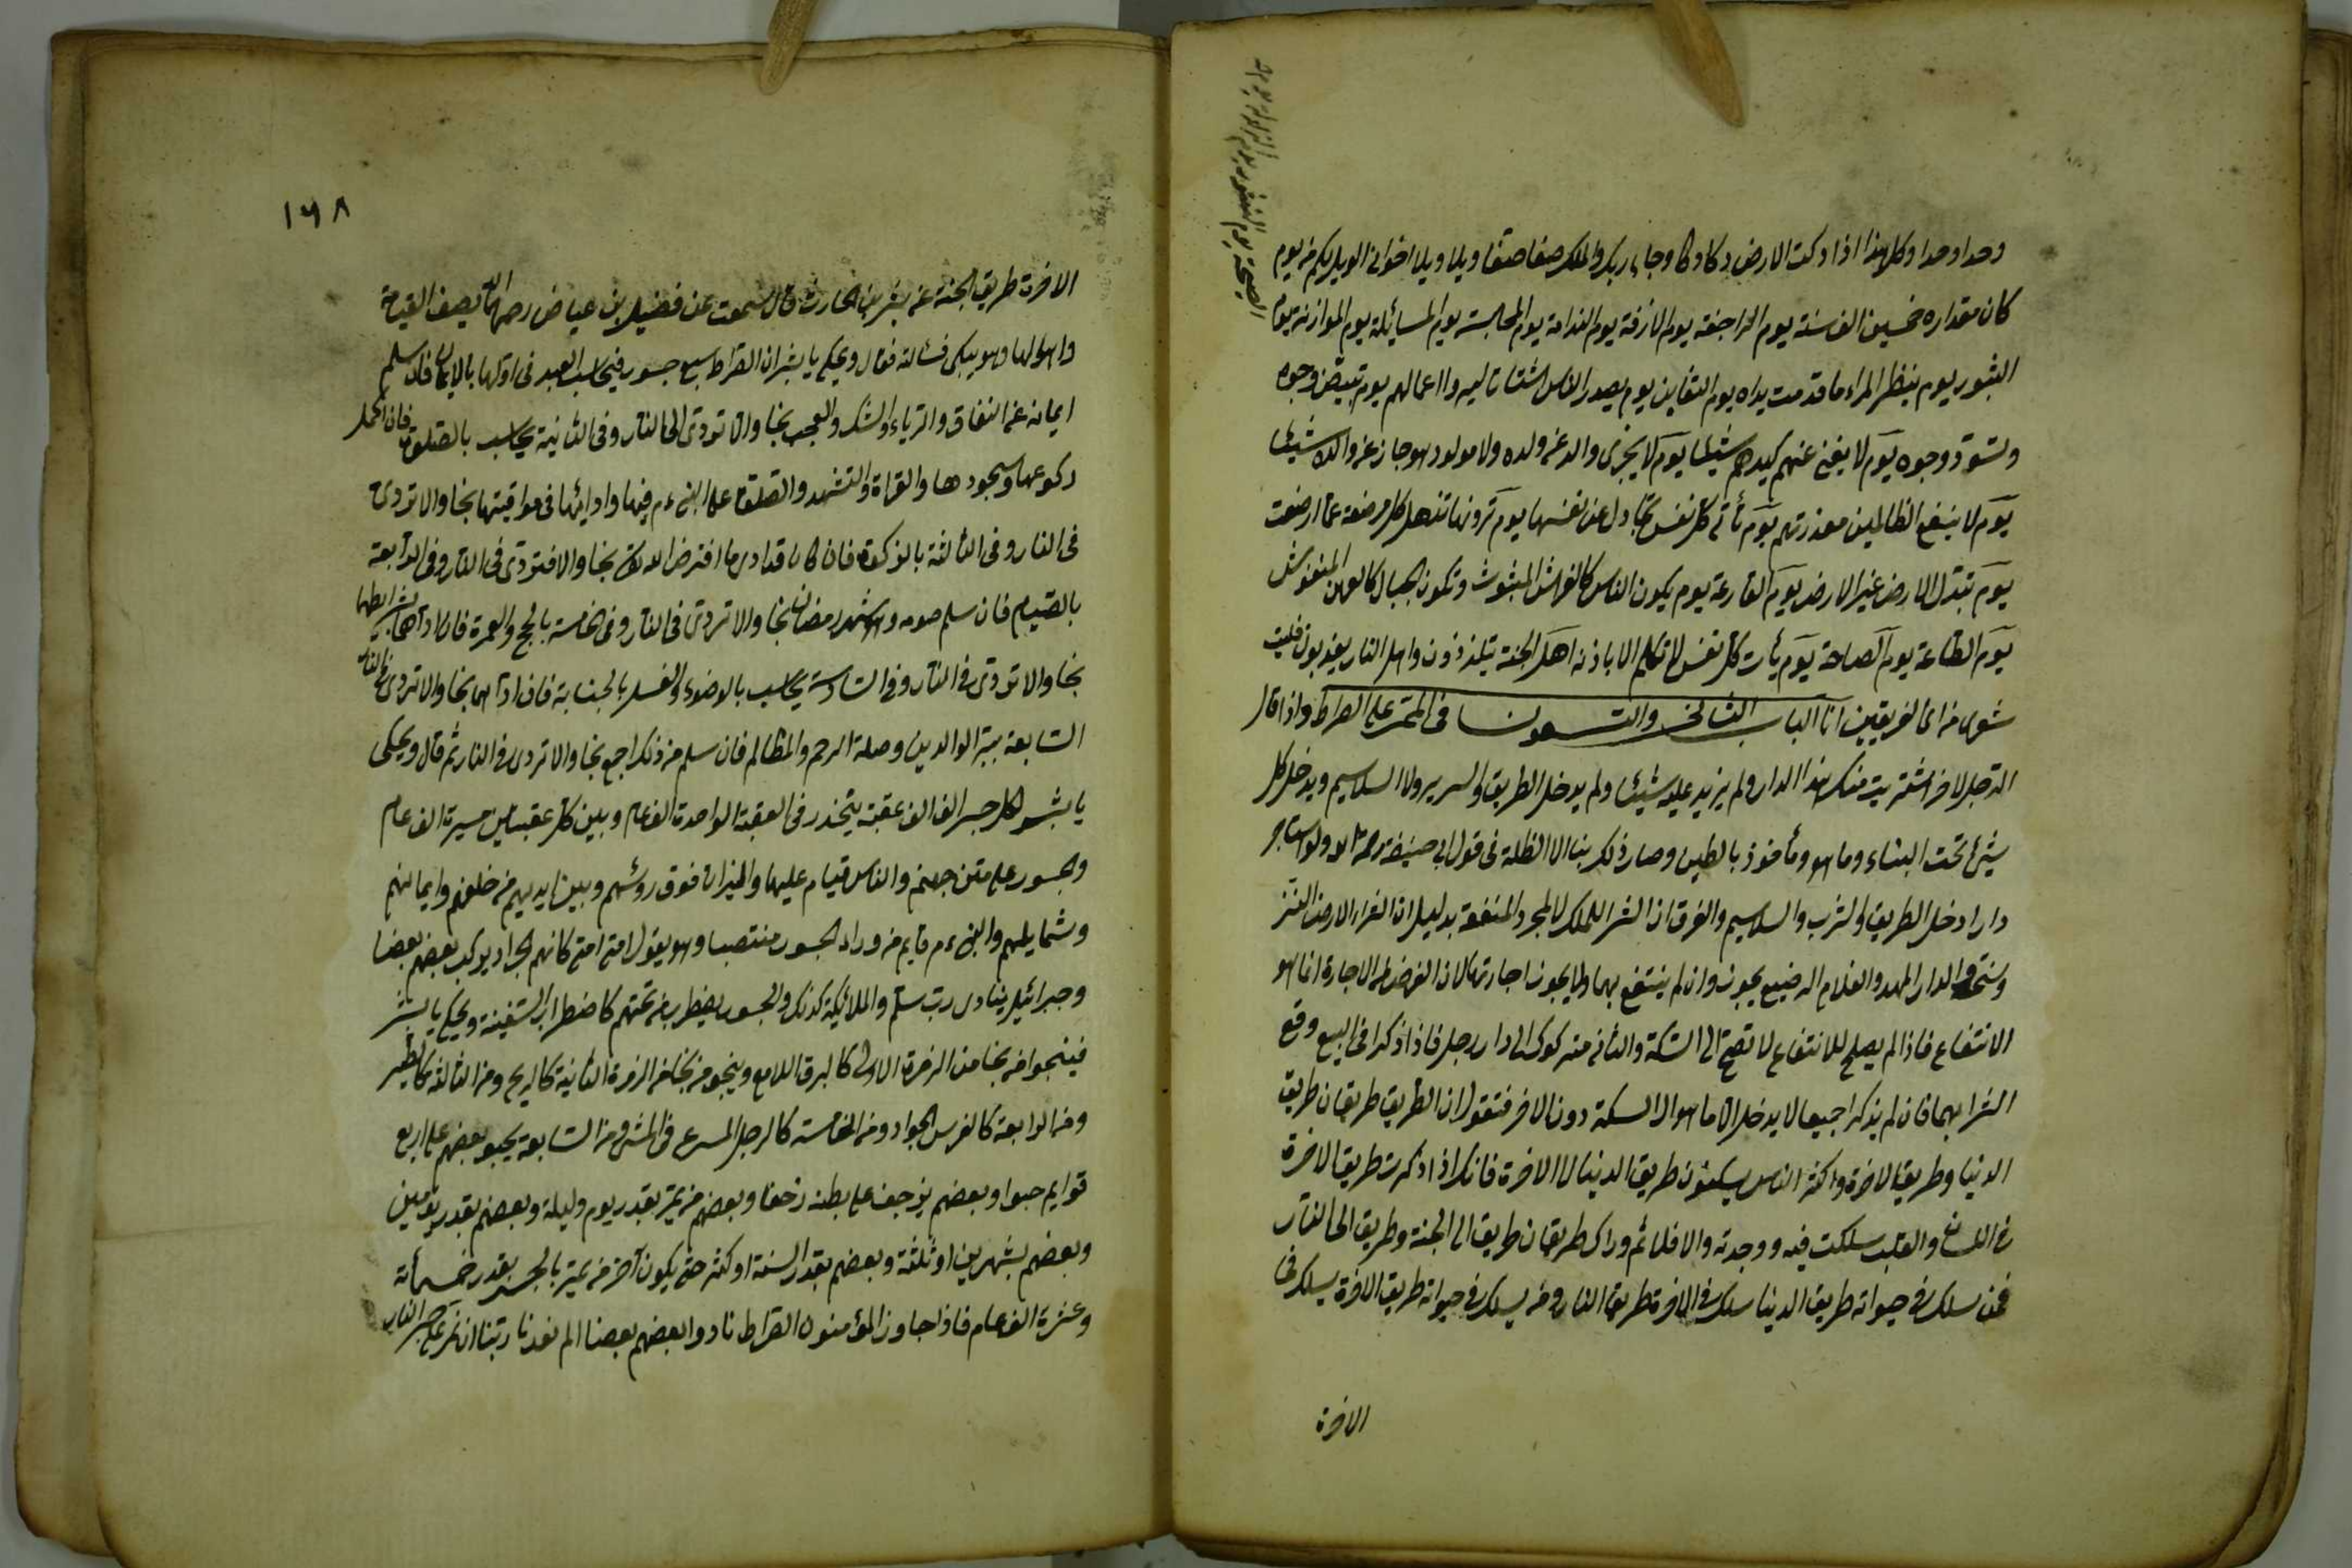 وحدا وحدا وكل هذا اذا دكت الارض دكا دكا وجاء ربك والملك صفا صفا ويلا ويلا اخوانى الويل لكم من يوم
كان مقداره خمسين الف سنة يوم الراجفة يوم الازفة يوم الندامة يوم المحاسبة يوم المسائلة يوم الموازنة يوم
الثبور يوم ينظر المرء ما قدمت يداه يوم التغابن يوم يصدر الناس اشتاتا ليروا اعمالهم يوم تبيض وجوه
وتسود وجوه يوم لا يغنى عنهم كيدهم شيئا يوم لا يجزى والد عن ولده ولا مولود هو جاز عن والده شيئا
يوم لا ينفع الظالمين معذرتهم يوم تأتى كل نفس تجادل عن نفسها يوم ترونها تذهل كل مرضعة عما ارضعت
يوم تبدل الارض غير الارض يوم القارعة يوم يكون الناس كالفراش المبثوث وتكون الجبال كالعهن المنفوش
يوم الطامة يوم الصاخة يوم يأت كل نفس لا تكلم الا باذنه اهل الجنة يتلذذون واهل النار يعذبون فليت
شعرى من اى الفريقين انا الباب الثانى والتسعون فى الممر على الصراط واذا قال
الرجل لاخر اشتريت منك هذا الدار ولم يزيد عليه شيئا ولم يدخل الطريق والسرير ولا السلاليم ويدخل كل
شيئ تحت البناء وما هو ومأخوذ بالطين وصار ذلك بناء الا الظلة فى قول ابى حنيفة رحمه الله ولو استاجر
دارا دخل الطريق والشرب والسلاليم والفرق ان الشراء للملك لا لمجرد المنفعة بدليل ان الشراء الارض النز
الدار المهد والغلام الرضيع يجوز وان لم ينتفع بها ولا يجوز اجارتها لان الغرض من الاجارة انما هو
الانتفاع فاذا لم يصلح للانتفاع لا تصح الى السكة والثانى الى دار رجل فاذا ذكرا فى البيع وقع
الشراء بهما فان لم يذكرا جميعا لا يدخل الا ما هو الى السكة دون الاخر فنقول ان الطريق طريقان طريق
الدنيا وطريق الاخرة واكثر الناس يسلكون طريق الدنيا لا الاخرة فانك اذا ذكرت طريق الاخرة
والقلب سلكت فيه ووجدته والا فلا ثم وراك طريقان طريق الى الجنة وطريق الى النار
فمن سلك فى حيوته طريق الدنيا سلك فى الاخرة طريق النار ومن يسلك فى حيوته طريق الاخرة يسلك فى
الاخرة
١٦٨
الاخرة طريق الجنة عن بشر بن الحارث قال سمعت عن فضيل بن عياض رحمه الله يصف القيامة
واهوالها وهو يبكى فسالته فقال ويحك يا بشر ان الصراط سبع جسور فيحاسب العبد فى اولها بالايمان فان سلم
ايمانه عن النفاق والرياء والشك والعجب نجا والا تردى الى النار وفى الثانية يحاسب بالصلوة فان اكمل
ركوعها وسجودها والقراة والتشهد والصلوة على النبى ءم فيها وادائها فى مواقيتها نجا والا تردى
فى النار وفى الثالثة بالزكوة فان كان قد ادى ما افترض الله نجا والا فتردى فى النار وفى الرابعة
بالصيام فان سلم صومه شهر رمضان نجا والا تردى فى النار وفى الخامسة بالحج والعمرة فان اداهما بشرايطها
نجا والا تردى فى النار وفى السادسة يحاسب بالوضوء والغسل بالجنابة فان اداهما نجا والا تردى فى النار
السابعة ببر الوالدين وصلة الرحم والمظالم فان سلم من ذلك اجمع نجا والا تردى فى النار ثم قال ويحكى
يا بشر لكل جسر الف الف عقبة يتخذر فى العقبة الواحدة الف عام وبين كل عقبتين مسيرة الف عام
وجسور على متن جهنم والناس قيام عليها والميزان فوق روسهم وبين ايديهم من خلفهم وايمانهم
وشمايلهم والنبى ءم قايم من وراء الجسور منتصبا وهو يقول امتى امتى كانهم الجراد يركب بعضهم بعضا
وجبرائيل ينادى رب سلم والملائكة كذلك والجسور يضطرب من تحتهم كاضطراب السفينة ويحك يا بشر
فينجوا من نجا من الزمرة الاولى كالبرق اللامع وينجو من نجا من الزمرة الثانية كالريح ومن الثالثة كالطير
ومن الرابعة كالفرس الجواد ومن الخامسة كالرجل المسرع فى المشى ومن السابعة يحبو بعضهم على اربع
قوايم حبوا وبعضهم يزحف على بطنه زحفا وبعضهم من يمر بقدر يوم وليلة وبعضهم بقدر يومين
وبعضهم بشهرين او ثلثة وبعضهم بقدر السنة او كثر حتى يكون آخر من يمر بالجسر بقدر خمسمائة
وعشرة الف عام فاذا جاوز المؤمنون الصراط نادوا بعضهم بعضا الم نعدنا ربنا ان نمر على جسر النار